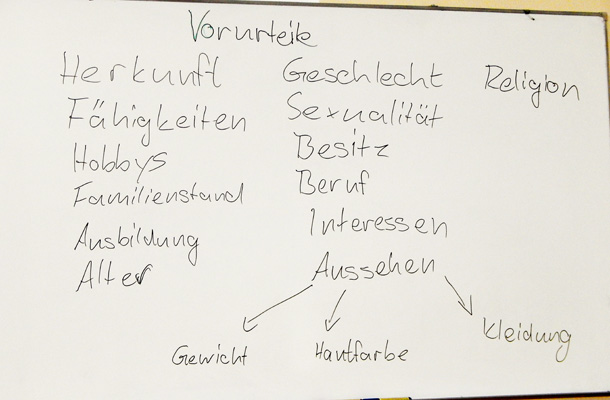 Vorurteile
Herkunft Geschlecht Religion
Fähigkeiten Sexualität
Hobbys Besitz
Familienstand Beruf
Ausbildung Interessen
Alter Aussehen
Gewicht Hautfarbe Kleidung